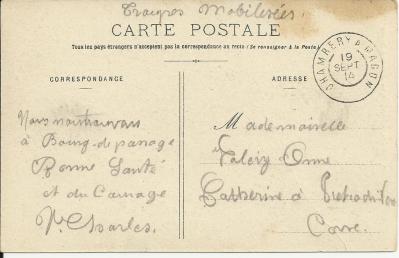 Troupes Mobilisées
CARTE POSTALE
Tous les pays étrangers n'acceptent pas la correspondance au recto (Se renseigner à la Poste)
CORRESPONDANCE
ADRESSE
CHAMBERY A MACON
19
SEPT
14
Nous
à Bourg de passage
Bonne Santé
et du Courage
Charles.
Mademoiselle
Anne
Catherine à